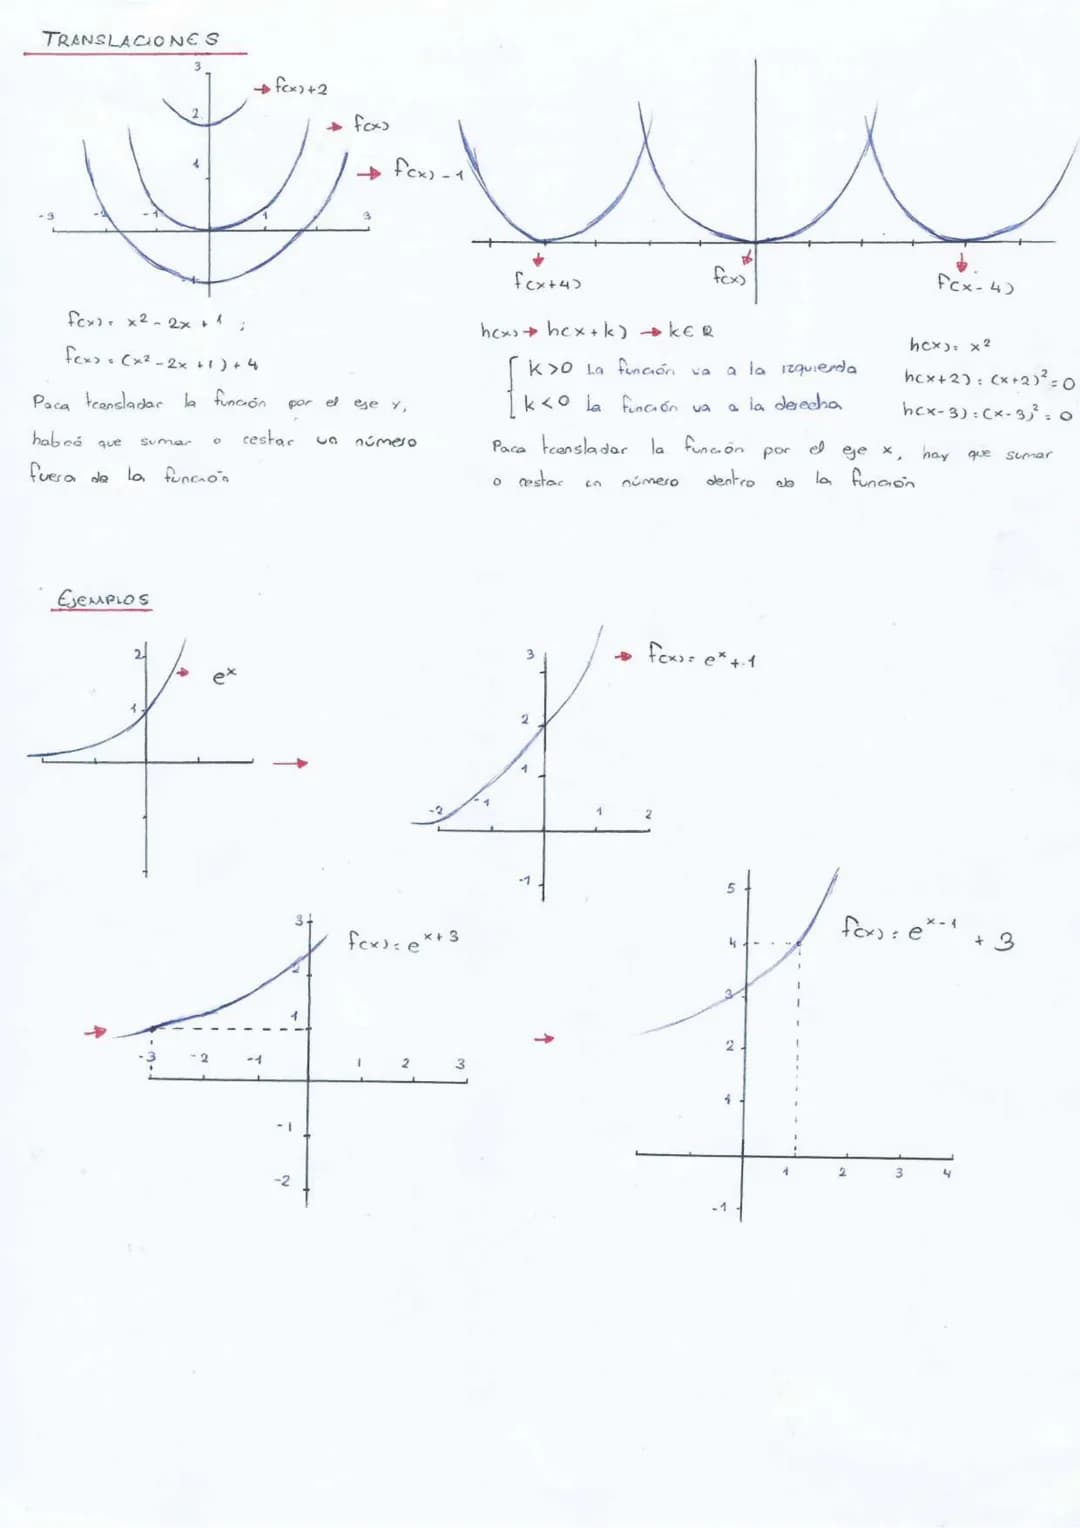 TRANSLACIONES
3
2
1
-3 -2 -1 1 3
-1
→ f(x)+2
→ f(x)
→ f(x)-1
f(x+4)
f(x)
f(x-4)
f(x) = x² - 2x + 1 ;
f(x) = (x² - 2x + 1) + 4
Para transladar la función por el eje y,
habrá que sumar o restar un número
fuera de la función
h(x) → h(x+k) → k∈ℝ
k>0 La función va a la izquierda
k<0 La función va a la derecha
h(x) = x²
h(x+2) = (x+2)² = 0
h(x-3) = (x-3)² = 0
Para transladar la función por el eje x, hay que sumar
o restar un número dentro de la función
EJEMPLOS
2
1
→ eˣ
→
3
2
1
-2 -1 1 2
-1
→ f(x) = eˣ + 1
→
3
2
1
-3 -2 -1 1 2 3
-1
-2
f(x) = eˣ⁺³
→
5
4
3
2
1
1 2 3 4
-1
f(x) = eˣ⁻¹ + 3